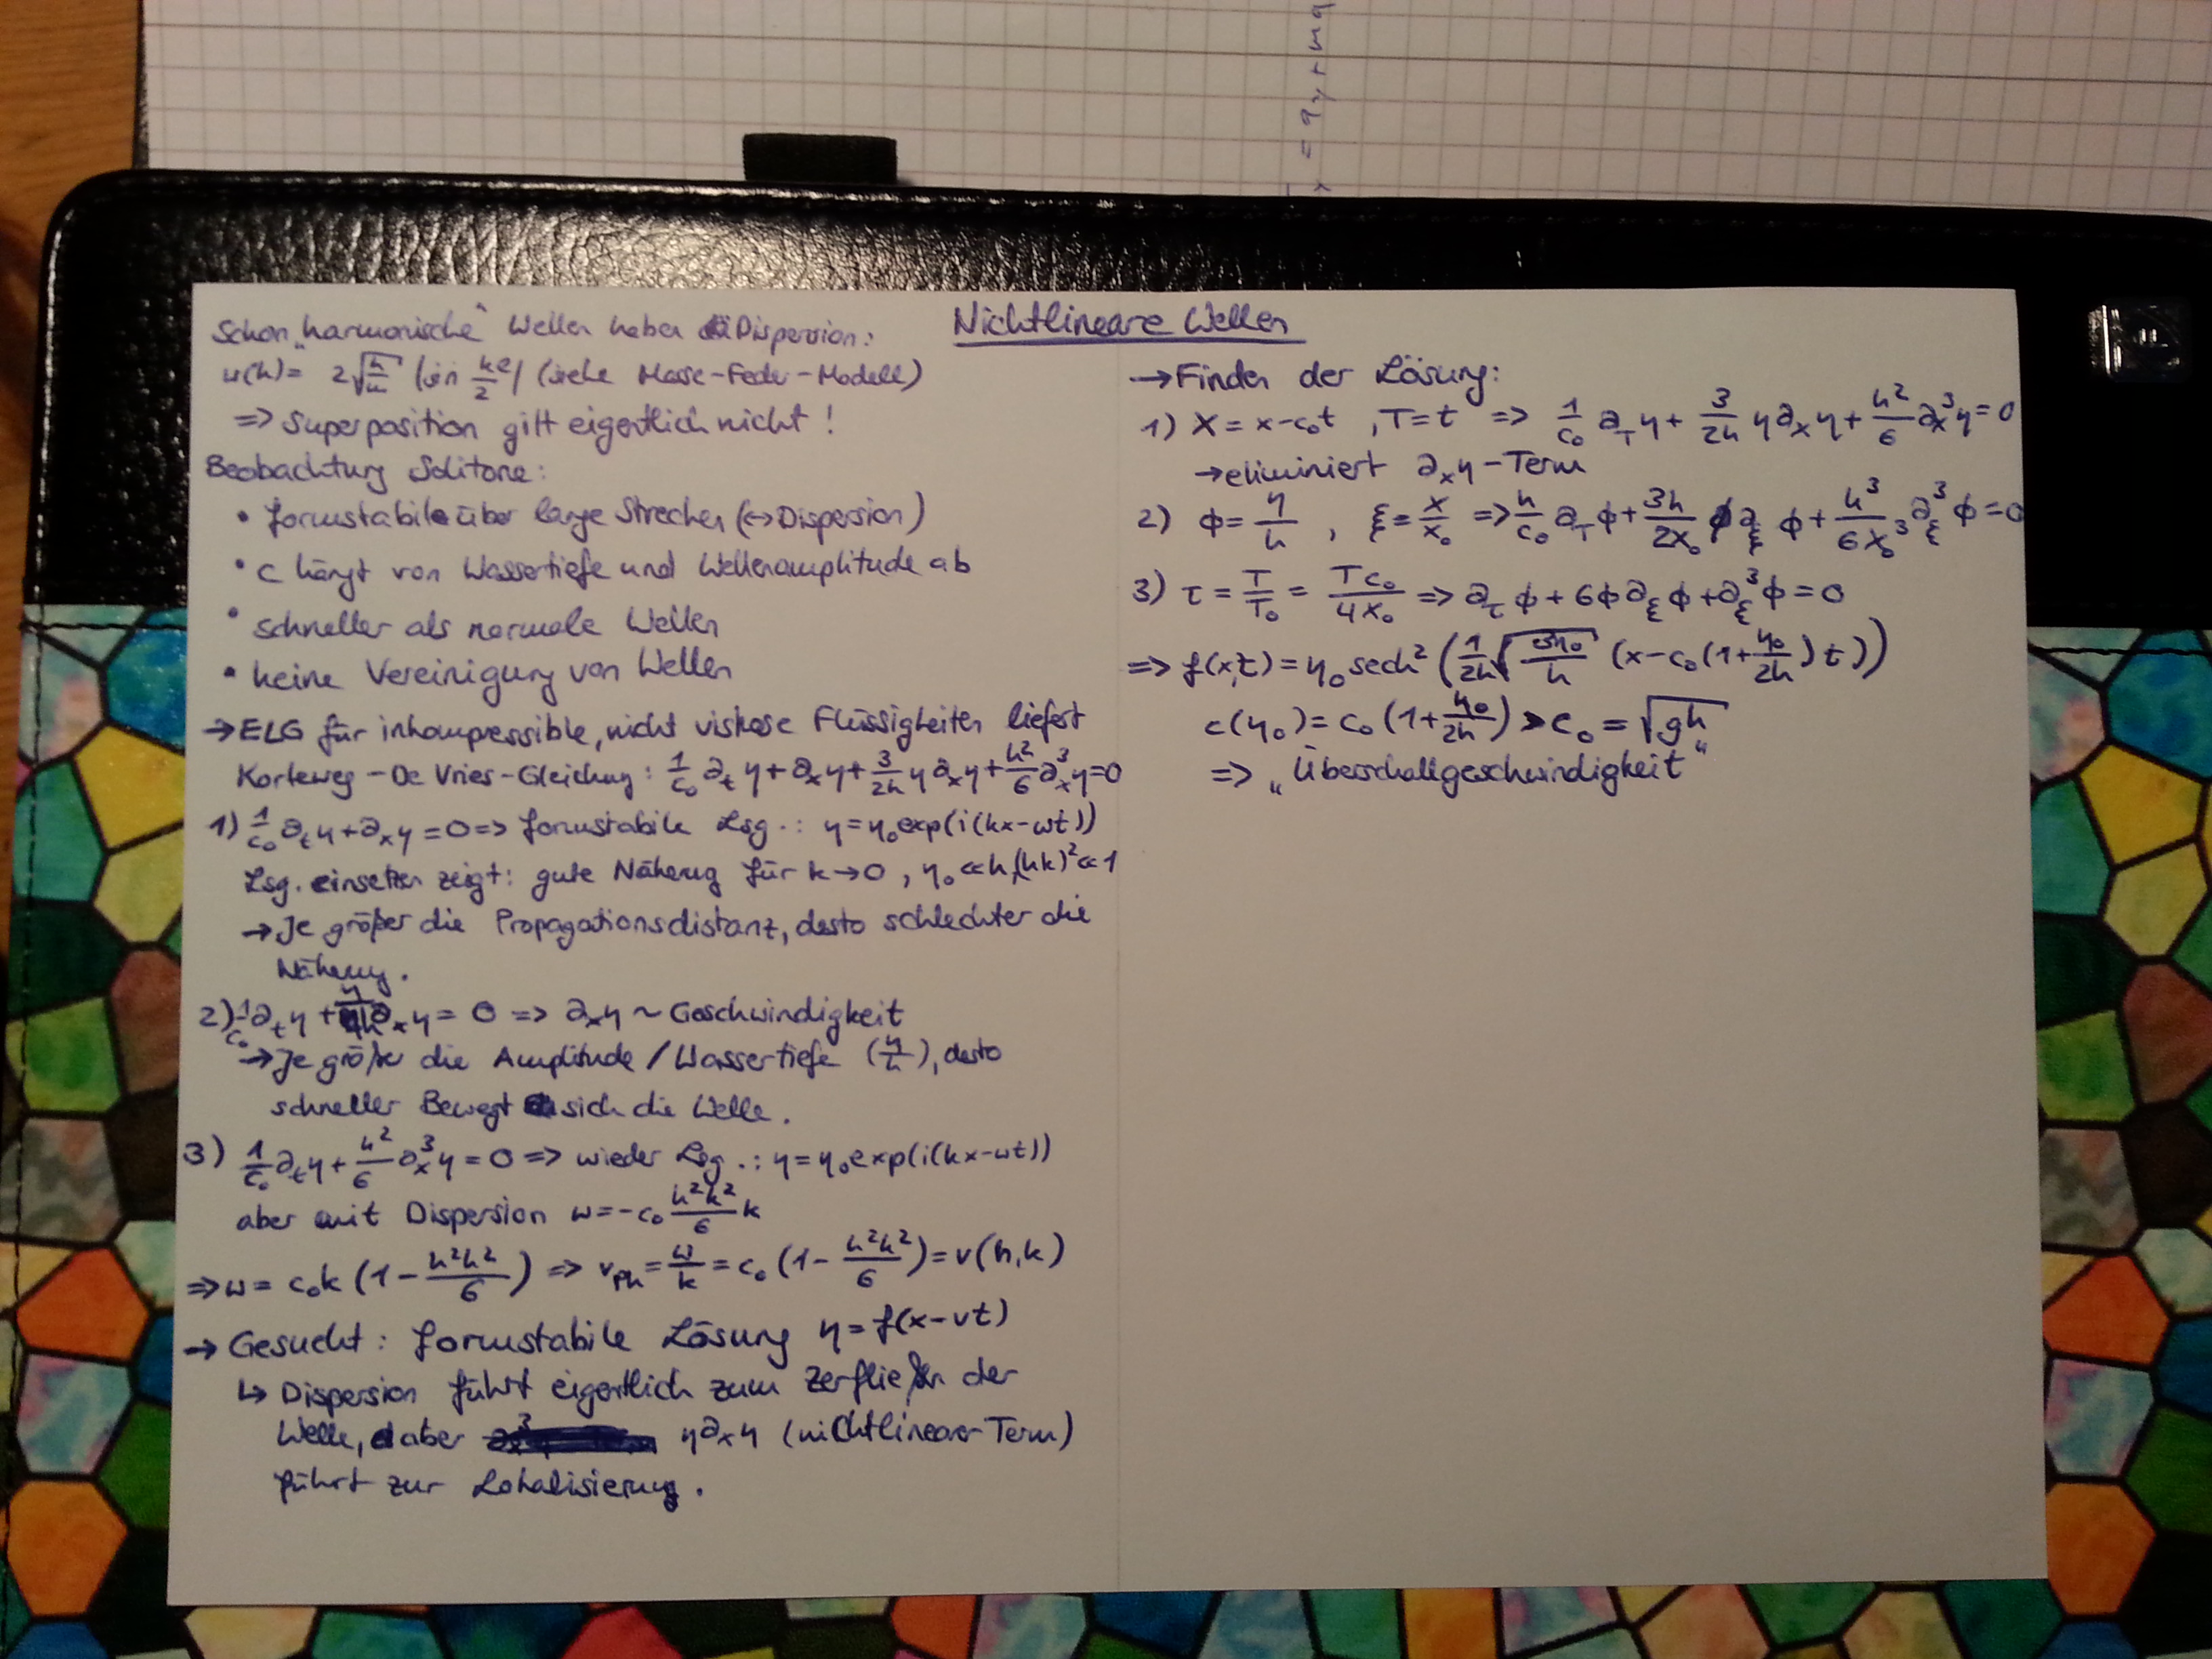 Nichtlineare Wellen
Schon „harmonische“ Wellen haben Dispersion:
ω(k) = 2√(k/m) |sin ka/2| (siehe Masse-Feder-Modell)
=> Superposition gilt eigentlich nicht!
Beobachtung Solitone:
• formstabil über lange Strecken (<-> Dispersion)
• c hängt von Wassertiefe und Wellenamplitude ab
• schneller als normale Wellen
• keine Vereinigung von Wellen
→ ELG für inkompressible, nicht viskose Flüssigkeiten liefert
Korteweg-De Vries-Gleichung: 1/c₀ ∂ₜη + ∂ₓη + 3/2h η∂ₓη + h²/6 ∂ₓ³η = 0
1) 1/c₀ ∂ₜη + ∂ₓη = 0 => formstabile Lsg.: η = η₀exp(i(kx-ωt))
Lsg. einsetzen zeigt: gute Näherung für k→0, η₀ ≪ h, (hk)² ≪ 1
→ Je größer die Propagationsdistanz, desto schlechter die
Näherung.
2) 1/c₀ ∂ₜη + ∂ₓη = 0 => ∂ₓη ~ Geschwindigkeit
→ Je größer die Amplitude / Wassertiefe (η/h), desto
schneller Bewegt sich die Welle.
3) 1/c₀ ∂ₜη + h²/6 ∂ₓ³η = 0 => wieder Lsg.: η = η₀exp(i(kx-ωt))
aber mit Dispersion ω = -c₀ h²k²/6 k
=> ω = c₀k (1 - h²k²/6) => v_Ph = ω/k = c₀ (1 - h²k²/6) = v(h,k)
→ Gesucht: formstabile Lösung η = f(x-vt)
↳ Dispersion führt eigentlich zum Zerfließen der
Welle, aber η∂ₓη (nichtlinearer Term)
führt zur Lokalisierung.
→ Finden der Lösung:
1) X = x-c₀t , T = t => 1/c₀ ∂_T η + 3/2h η∂ₓη + h²/6 ∂ₓ³η = 0
→ eliminiert ∂ₓη-Term
2) ϕ = η/h , ξ = X/X₀ => h/c₀ ∂_T ϕ + 3h/2X₀ ϕ∂_ξ ϕ + h³/6X₀³ ∂_ξ³ ϕ = 0
3) τ = T/T₀ = Tc₀/4X₀ => ∂_τ ϕ + 6ϕ∂_ξ ϕ + ∂_ξ³ ϕ = 0
=> f(x,t) = η₀ sech² (1/2h √(3η₀/h) (x-c₀(1+η₀/2h)t))
c(η₀) = c₀ (1+η₀/2h) > c₀ = √gh
=> „Überschallgeschwindigkeit“